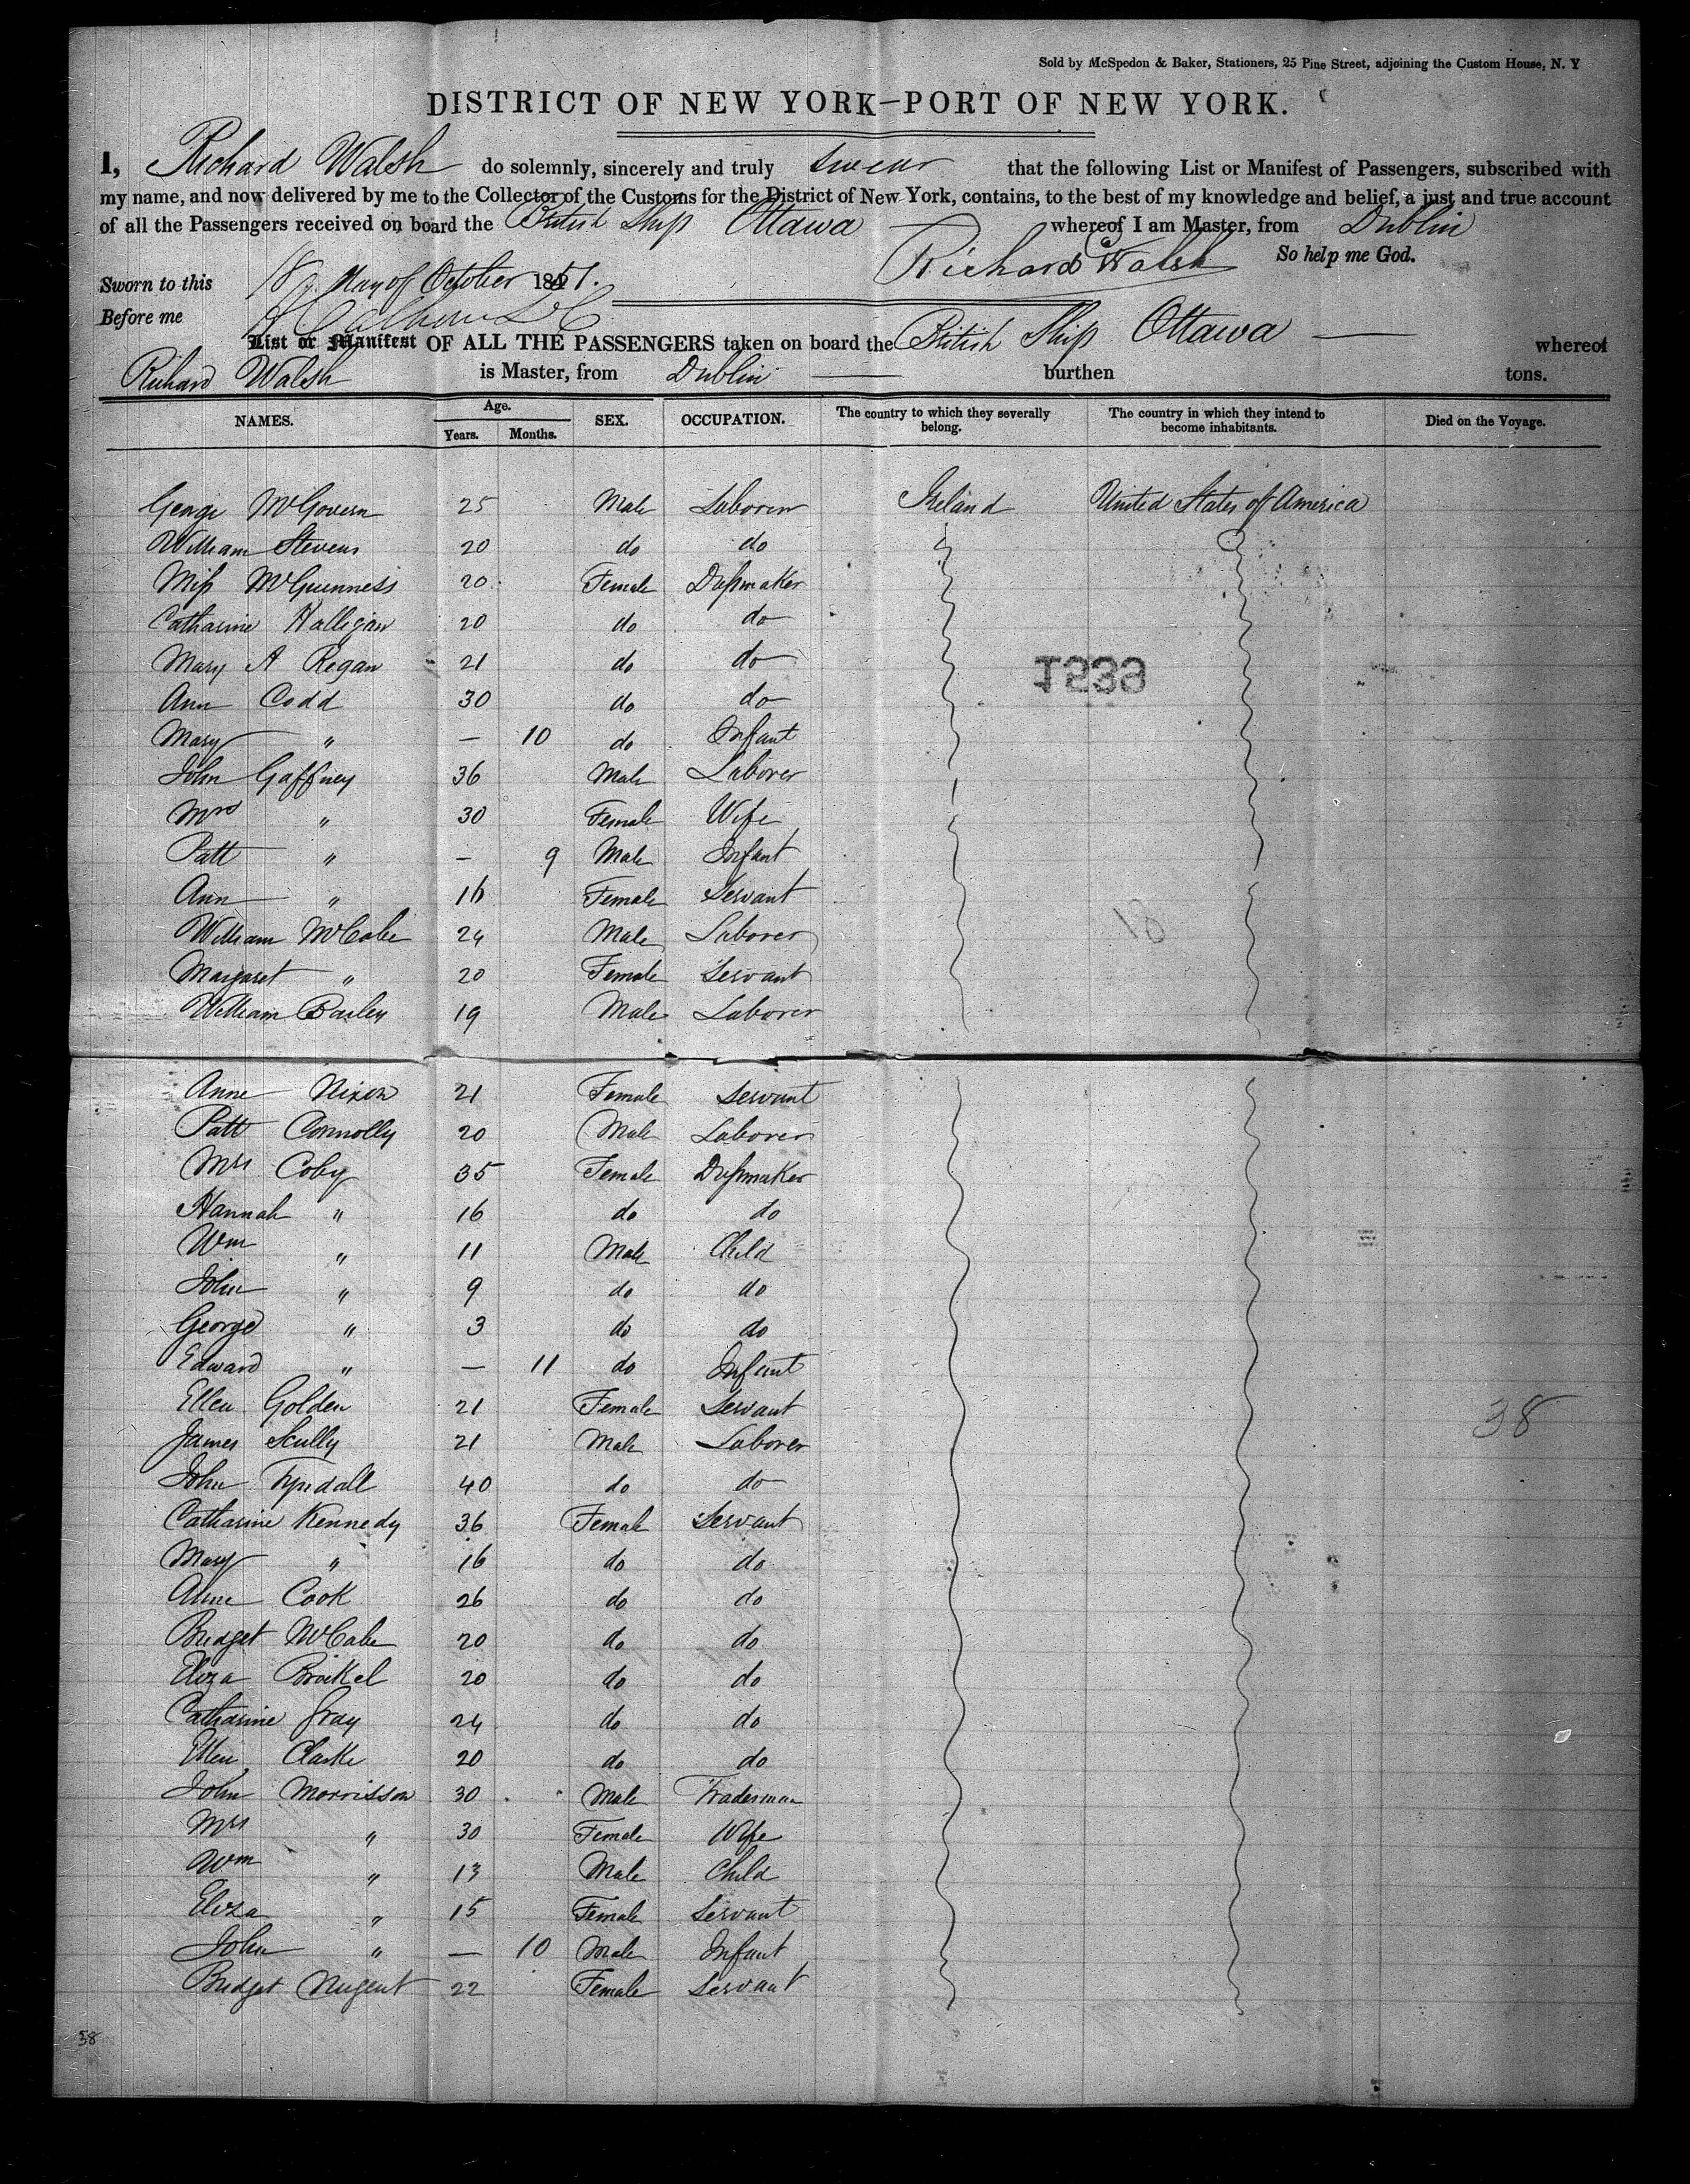 Sold by McSpedon & Baker, Stationers, 25 Pine Street, adjoining the Custom House, N. Y
DISTRICT OF NEW YORK—PORT OF NEW YORK.
I, Richard Walsh do solemnly, sincerely and truly swear that the following List or Manifest of Passengers, subscribed with
my name, and now delivered by me to the Collector of the Customs for the District of New York, contains, to the best of my knowledge and belief, a just and true account
of all the Passengers received on board the British Ship Ottawa whereof I am Master, from Dublin
Richard Walsh So help me God.
Sworn to this 18 day of October 1851.
Before me
List or Manifest OF ALL THE PASSENGERS taken on board the British Ship Ottawa — whereof
Richard Walsh is Master, from Dublin — burthen tons.
NAMES. Age. Years. Months. SEX. OCCUPATION. The country to which they severally belong. The country in which they intend to become inhabitants. Died on the Voyage.
George McGovern 25 Male Laborer Ireland United States of America
William Stevens 20 do do
Miss McGuinness 20 Female Dressmaker
Catharine Halligan 20 do do
Mary A Regan 21 do do
1239
Ann Codd 30 do do
Mary " — 10 do Infant
John Gaffney 36 Male Laborer
Mrs " 30 Female Wife
Patt " — 9 Male Infant
Ann " 16 Female Servant
William McCabe 24 Male Laborer
18
Margaret " 20 Female Servant
William Bailey 19 Male Laborer
Anne Nixon 21 Female Servant
Patt Connolly 20 Male Laborer
Mrs Coby 35 Female Dressmaker
Hannah " 16 do do
Wm " 11 Male Child
John " 9 do do
George " 3 do do
Edward " — 11 do Infant
Ellen Golden 21 Female Servant
38
James Scully 21 Male Laborer
John Tyndall 40 do do
Catharine Kennedy 36 Female Servant
Mary " 16 do do
Anne Cook 26 do do
Bridget McCabe 20 do do
Eliza 20 do do
Catharine Gray 24 do do
Ellen Clarke 20 do do
John Morrisson 30 Male Tradesman
Mrs " 30 Female Wife
Wm " 13 Male Child
Eliza " 15 Female Servant
John " — 10 Male Infant
Bridget Nugent 22 Female Servant
38